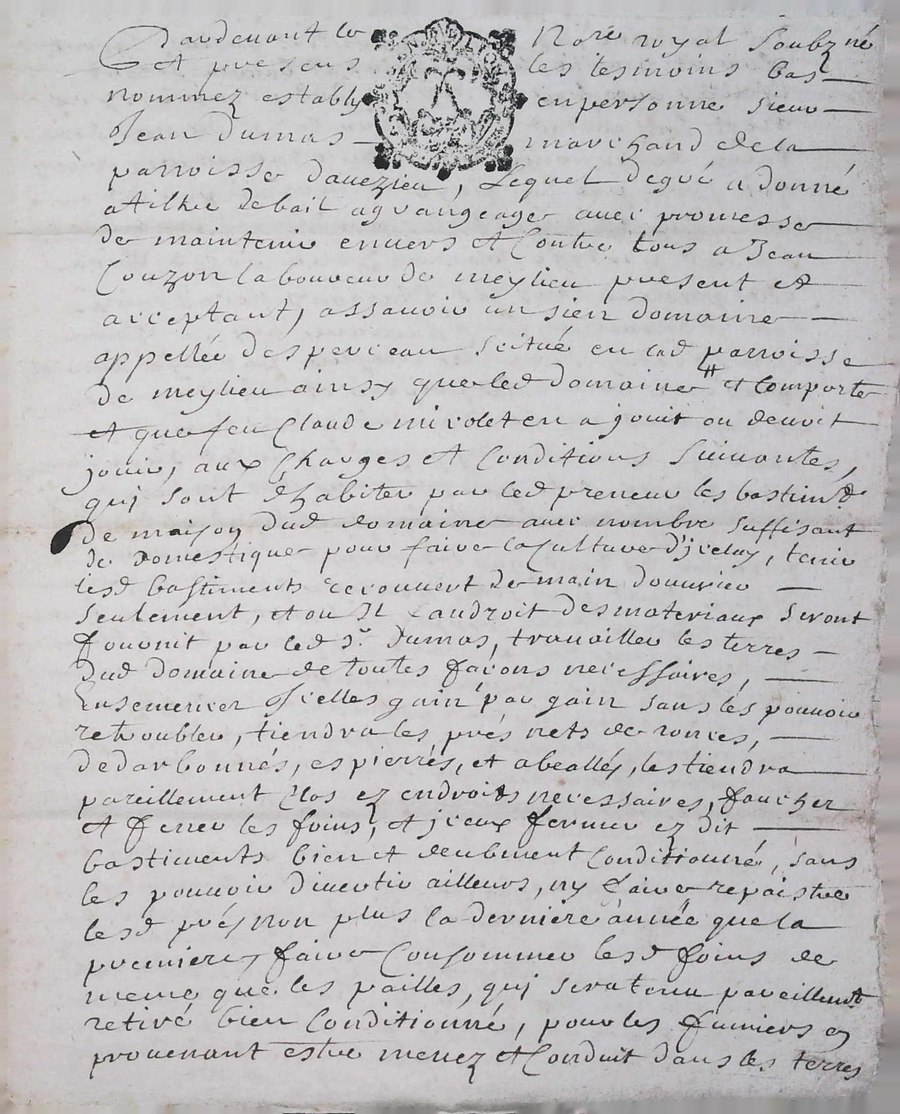 Pardevant le Nore royal soubz né
et presens les tesmoins bas
nommez estably en personne sieur
Jean Dumas marchand de la
parroisse davezieu, Lequel de gré a donné
a tiltre de bail a grangeage avec promesse
de maintenir envers et contre tous a Jean
Couzon laboureur de meylieu present et
acceptant, assavoir un sien domaine
appellée desperceau scitué en lad parroisse
de meylieu ainsy que led domaine et comporte
et que feu Claude mirolet en a jouit ou devoit
jouir, aux charges et conditions suivantes,
qui sont dhabiter par led preneur les bastimts
de maison dud domaine avec nombre suffisant
de domestique pour faire la culture d'iceluy, tenir
lesd bastiments recouvert de main douvrier
seulement, et ou Il faudroit des materiaux seront
fournit par led sr Dumas, travailler les terres
dud domaine de toutes façons necessaires,
Ensemencer Icelles gain par gain sans les pouvoir
retroubler, tiendra les prés nets de ronces,
dedarbonnés, espierrés, et abeallés, les tiendra
pareillement Clos ez endroits necessaires, faucher
et fener les foins, et iceux fermer ez dit
bastiments bien et deubment conditionné, sans
les pouvoir divertir ailleurs, ny faire repaistre
lesd prés non plus la derniere année que la
premiere, faire consommer lesd foins de
meme que les pailles, qui sera tenu pareillemt
retiré bien conditionné, pour les fumiers en
provenant estre menez et conduit dans les terres